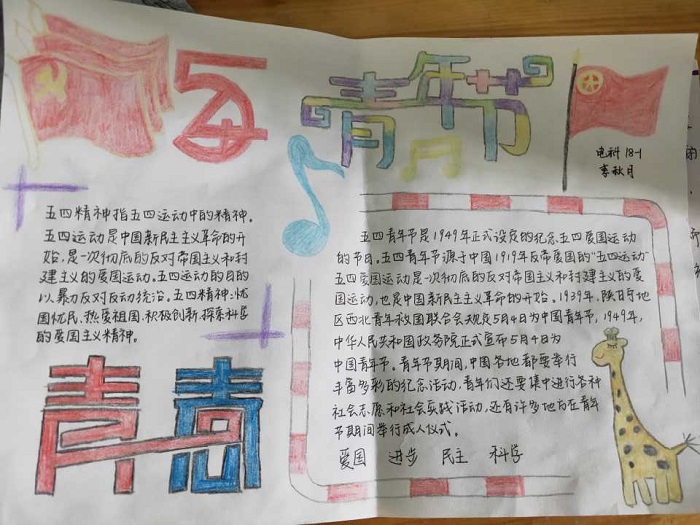 五四
青年节
电科18-1
李秋月
五四精神指五四运动中的精神。
五四运动是中国新民主主义革命的开
始,是一次彻底的反对帝国主义和封
建主义的爱国运动。五四运动的目的
以暴力反对反动统治。五四精神:忧
国忧民、热爱祖国、积极创新、探索科学
的爱国主义精神。
五四青年节是1949年正式设定的纪念五四爱国运动
的节日。五四青年节源于中国1919年反帝爱国的“五四运动”
五四爱国运动是一次彻底的反对帝国主义和封建主义的爱
国运动,也是中国新民主主义革命的开始。1939年,陕甘宁地
区西北青年救国联合会规定5月4日为中国青年节。1949年,
中华人民共和国政务院正式宣布5月4日为
中国青年节。青年节期间,中国各地都要举行
丰富多彩的纪念活动,青年们还要集中进行各种
社会志愿和社会实践活动,还有许多地方在青年
节期间举行成人仪式。
爱国 进步 民主 科学
青